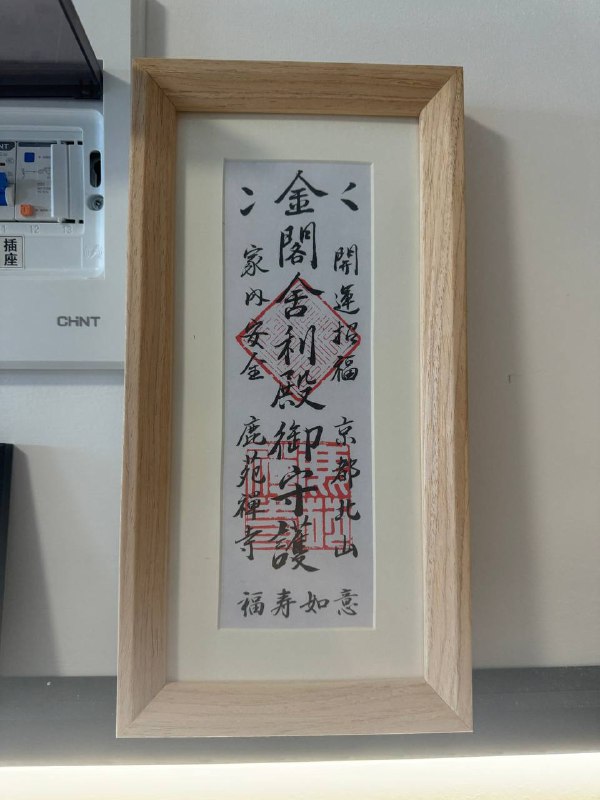 開運招福 京都北山
金閣舍利殿御守護
家内安全 鹿苑禅寺
福寿如意
CHNT
插座
11 12 13